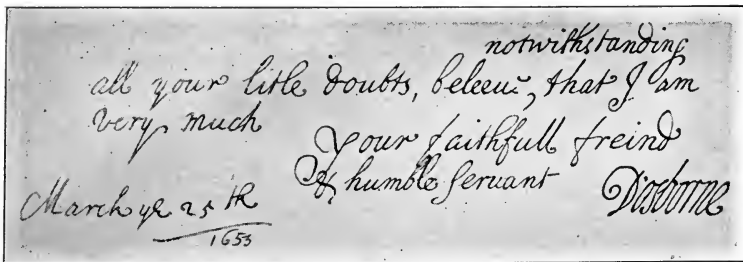 notwithstanding
all your litle doubts, beleeve, that I am
very much
Your faithfull freind
& humble servant
March ye 25th
D'osborne
1653